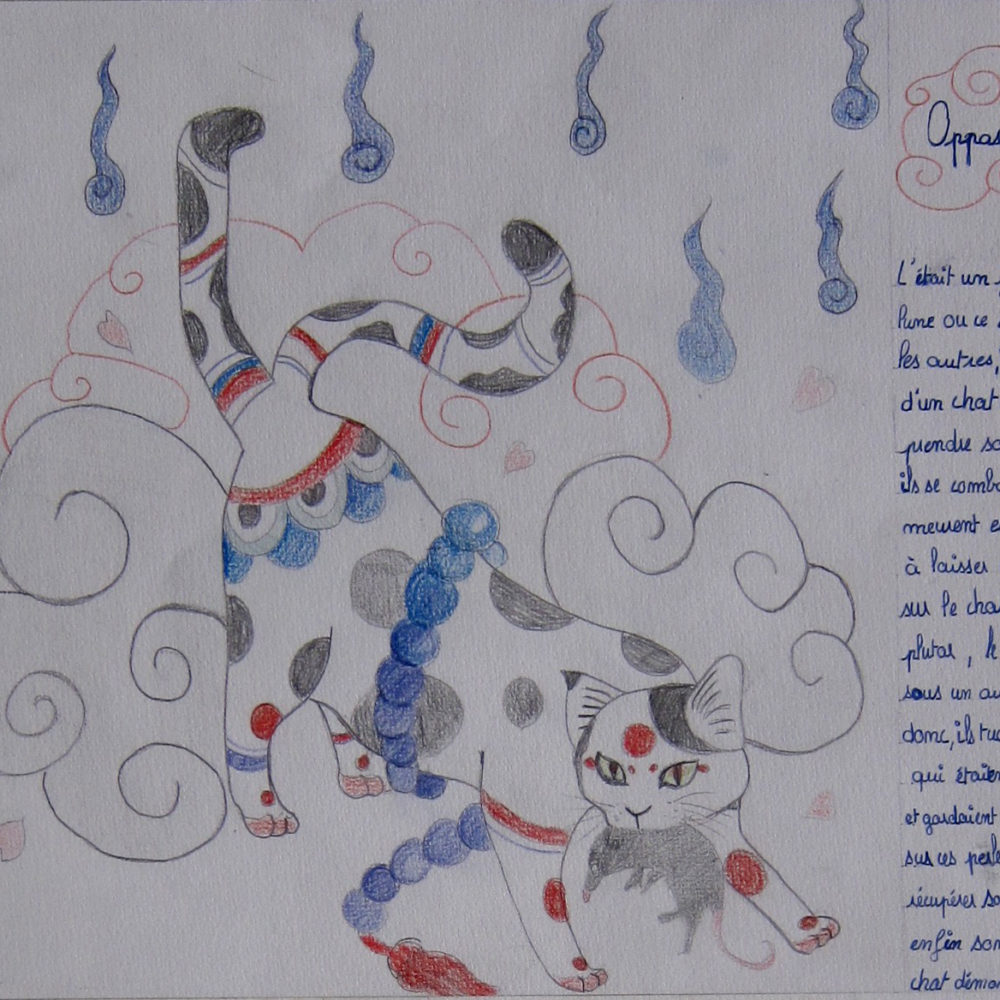 Oppas
L'était un
lune ou ce
les autres,
d'un chat
prendre so
ils se comba
mewent e
à laisser
sur le cha
plutar, h
sous un au
donc, ils tu
qui étaien
et gardaient
sus ces perle
récupérer so
enfin son
chat démon